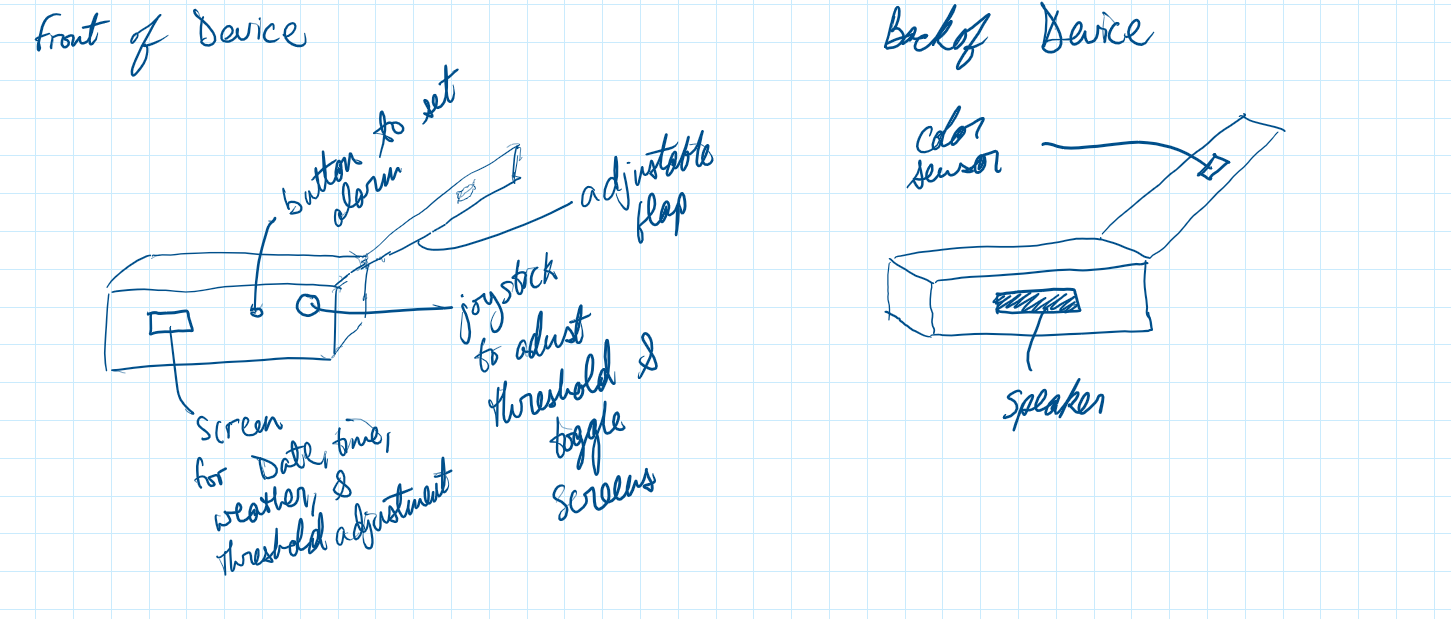 Front of Device
button to set
alarm
adjustable
flap
joystick
to adust
threshold &
toggle
screens
screen
for Date, time,
weather, &
threshold adjustment
Back of Device
color
sensor
speaker